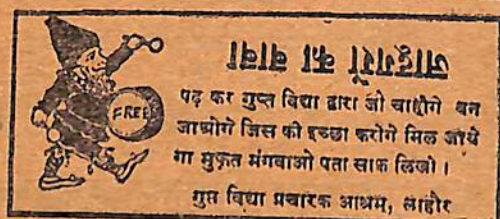 जादूगरों का बाबा
FREE
पढ़ कर गुप्त विद्या द्वारा जो चाहोगे बन
जाओगे जिस की इच्छा करोगे मिल जाये
गा मुफ़त मंगवाओ पता साफ़ लिखो ।
गुप्त विद्या प्रचारक आश्रम, लाहौर